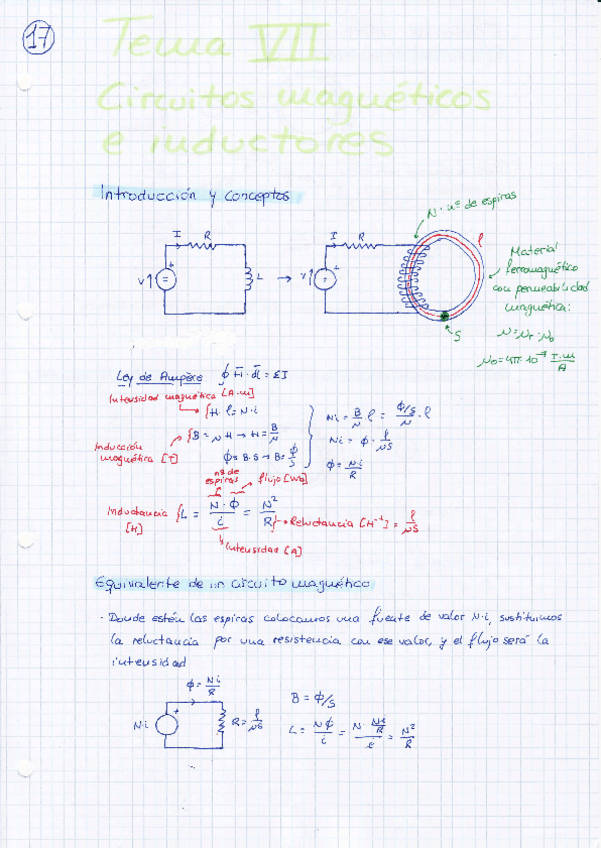 17
Tema VII
Circuitos magnéticos
e inductores
Introducción y conceptos
N: nº de espiras
I R
V L
I R
V
l
Material
ferromagnético
con permeabilidad
magnética:
μ = μr · μo
μo = 4π·10⁻⁷ T·m/A
S
Ley de Ampère ∮ H · dl = ΣI
Intensidad magnética [A·m]
H · l = N · i
Inducción magnética [T]
B = μH → H = B/μ
φ = B·S → B = φ/S
Ni = B/μ · l = φ/S/μ · l
Ni = φ · l/μS
φ = Ni/R
nº de espiras
flujo [Wb]
Inductancia [H]
L = N·φ/i = N²/R
Reluctancia [H⁻¹] = l/μS
Intensidad [A]
Equivalente de un circuito magnético
· Donde estén las espiras colocamos una fuente de valor N·i, sustituimos
la reluctancia por una resistencia con ese valor, y el flujo será la
intensidad
φ = Ni/R
N·i
R = l/μS
B = φ/S
L = Nφ/i = N · Ni/R / i = N²/R